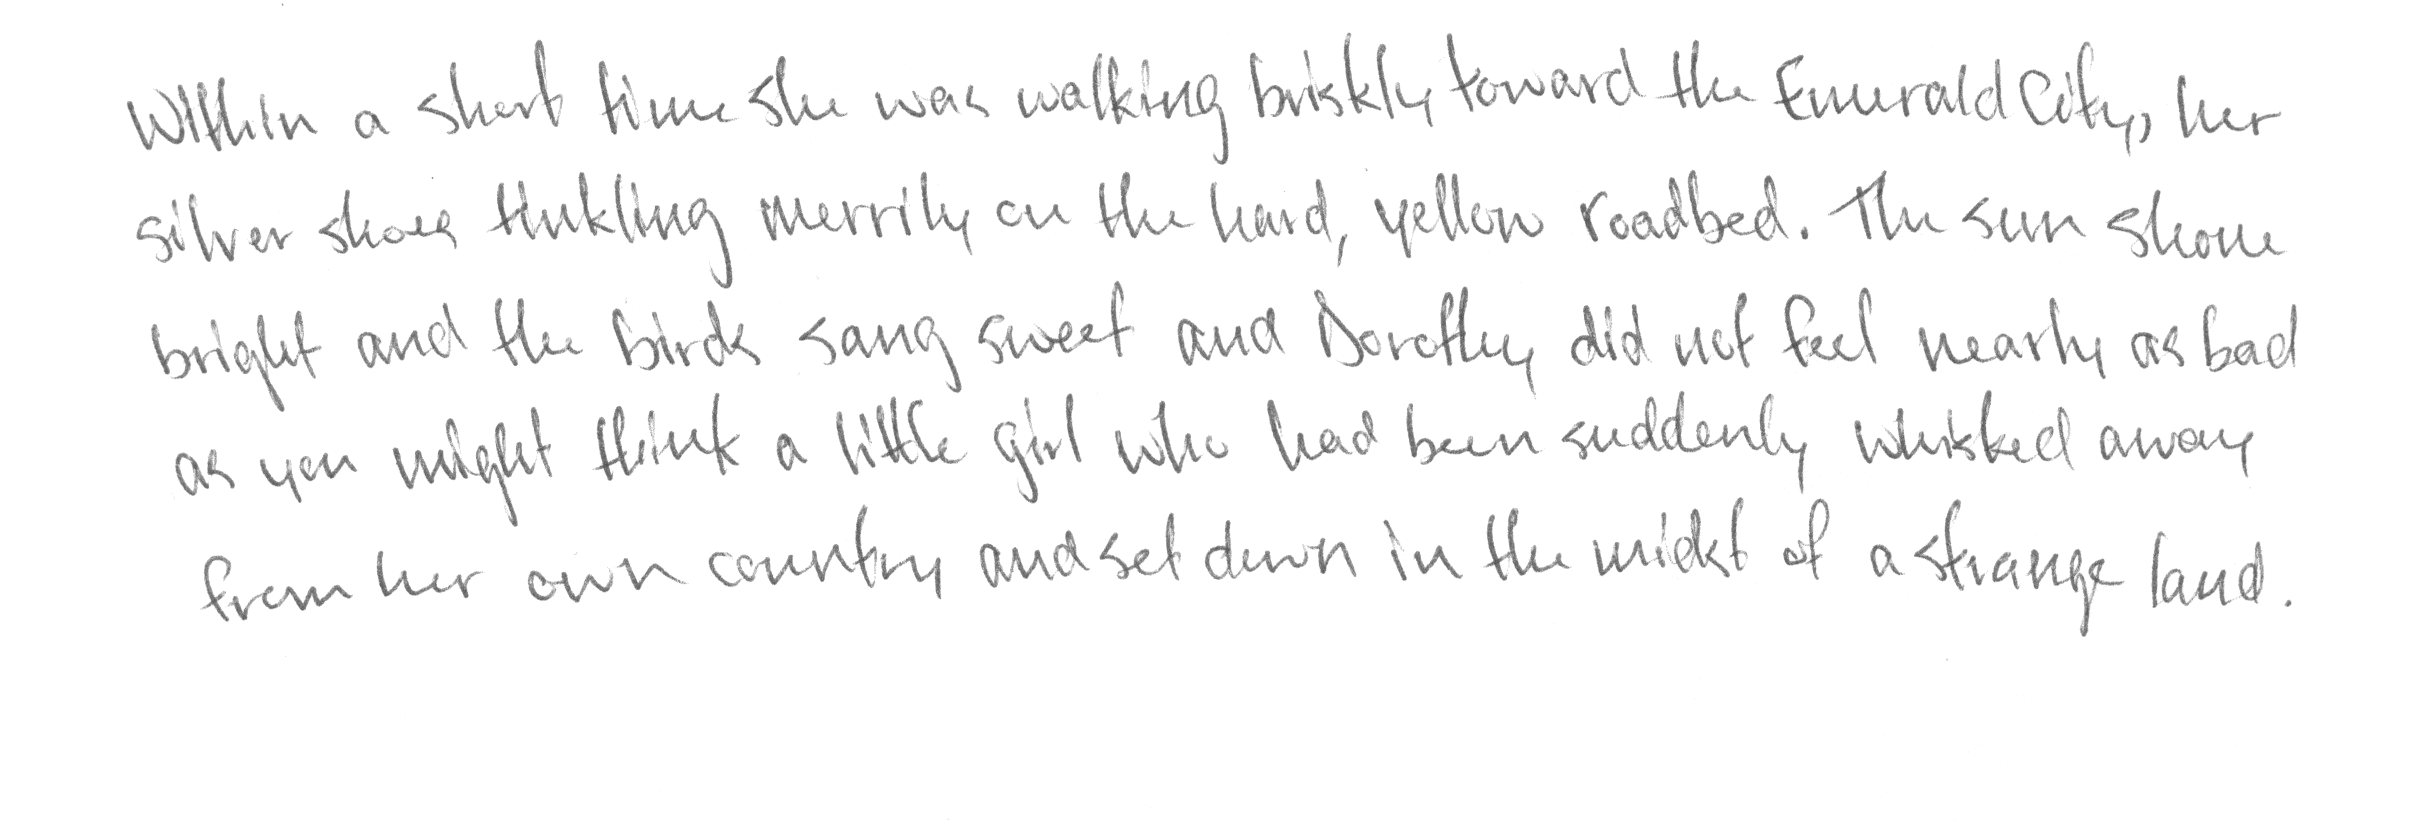 Within a short time she was walking briskly toward the Emerald City, her
silver shoes tinkling merrily on the hard, yellow roadbed. The sun shone
bright and the birds sang sweet and Dorothy did not feel nearly as bad
as you might think a little girl who had been suddenly whisked away
from her own country and set down in the midst of a strange land.